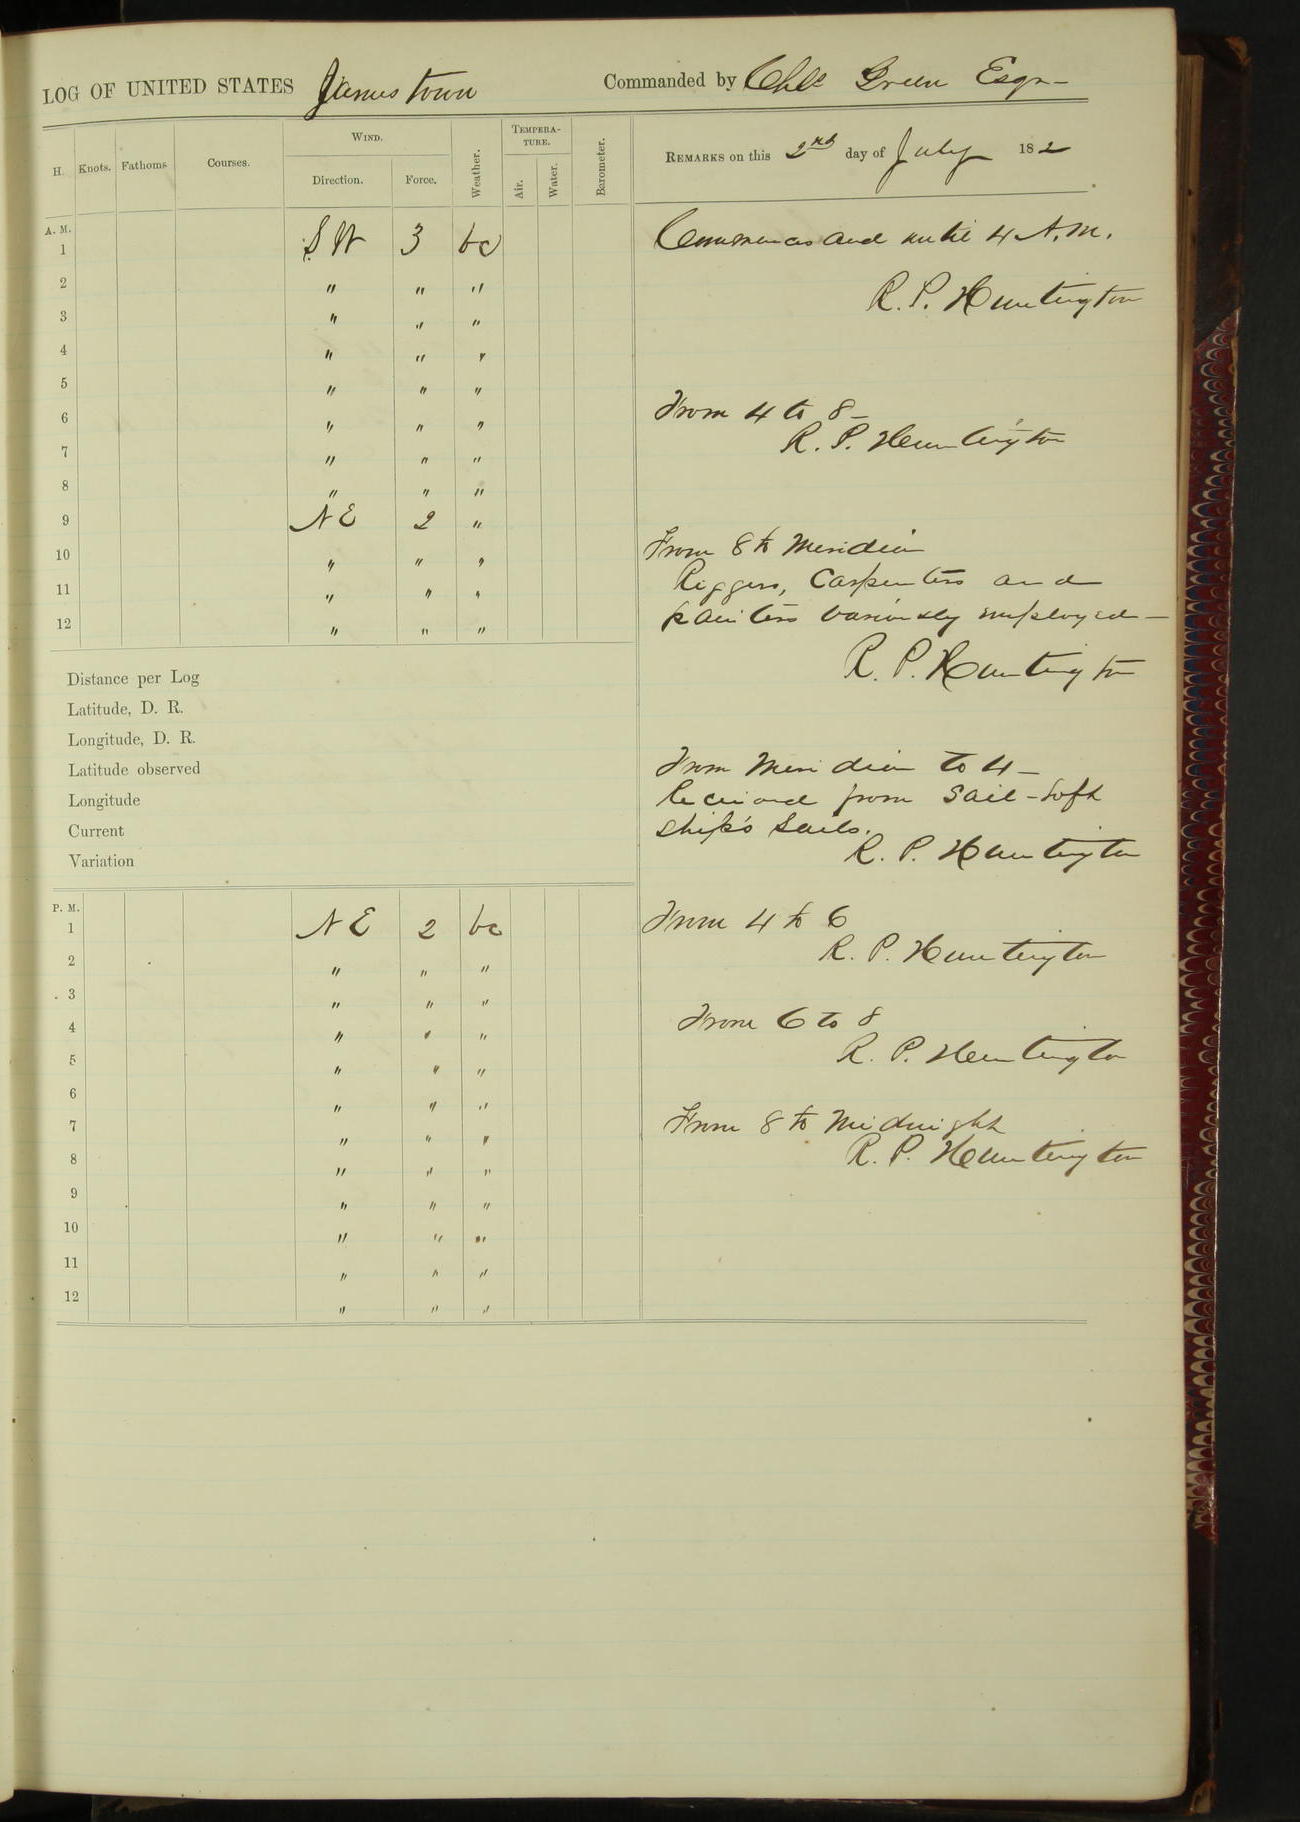 LOG OF UNITED STATES Jamestown Commanded by Chas Green Esqr
H. Knots. Fathoms Courses. WIND. Direction. Force. Weather. TEMPERA-TURE. Air. Water. Barometer. REMARKS on this 2nd day of July 182
A. M.
1 SW 3 bc
2 " " "
3 " " "
4 " " "
5 " " "
6 " " "
7 " " "
8 " " "
9 NE 2 "
10 " " "
11 " " "
12 " " "
Commences and until 4 A.M.
R. P. Huntington
From 4 to 8 –
R. P. Huntington
From 8 to Meridian
Riggers, Carpenters and
painters variously employed –
R. P. Huntington
Distance per Log
Latitude, D. R.
Longitude, D. R.
Latitude observed
Longitude
Current
Variation
From Meridian to 4 –
Received from Sail-loft
ship's Sails.
R. P. Huntington
P. M.
1 NE 2 bc
2 " " "
3 " " "
4 " " "
5 " " "
6 " " "
7 " " "
8 " " "
9 " " "
10 " " "
11 " " "
12 " " "
From 4 to 6
R. P. Huntington
From 6 to 8
R. P. Huntington
From 8 to Midnight
R. P. Huntington